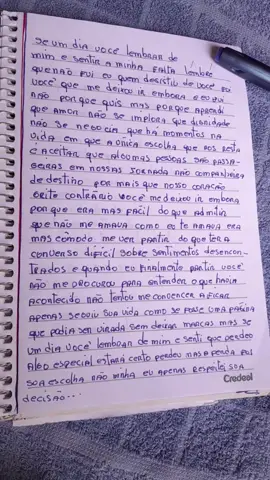 Se um dia você lembrar de
mim e sentir a minha falta lembre
que não fui eu quem desistiu de você foi
você que me deixou ir embora e eu fui
não porque quis mas porque aprendi
que amor não se implora que dignidade
não se negocia que há momentos na
vida em que a única escolha que nos resta
é aceitar que algumas pessoas são passa-
geiras em nossas jornada não companheira
de destino por mais que nosso coração
grite contrário você me deixou ir embora
porque era mas facil do que admitir
que não me amava como eu te amava era
mas cômodo me ver partir do que ter a
conversa dificil sobre sentimentos desencon-
trados e quando eu finalmente partir você
não me procurou para entender o que havia
acontecido não tentou me convencer a ficar
apenas seguiu sua vida como se fosse uma página
que podia ser virada sem deixar marcas mas se
um dia você lembrar de mim e senti que perdeu
algo especial estará certo perdeu mas a perda foi
sua escolha não minha eu apenas respeitei sua
decisão...
Credeal